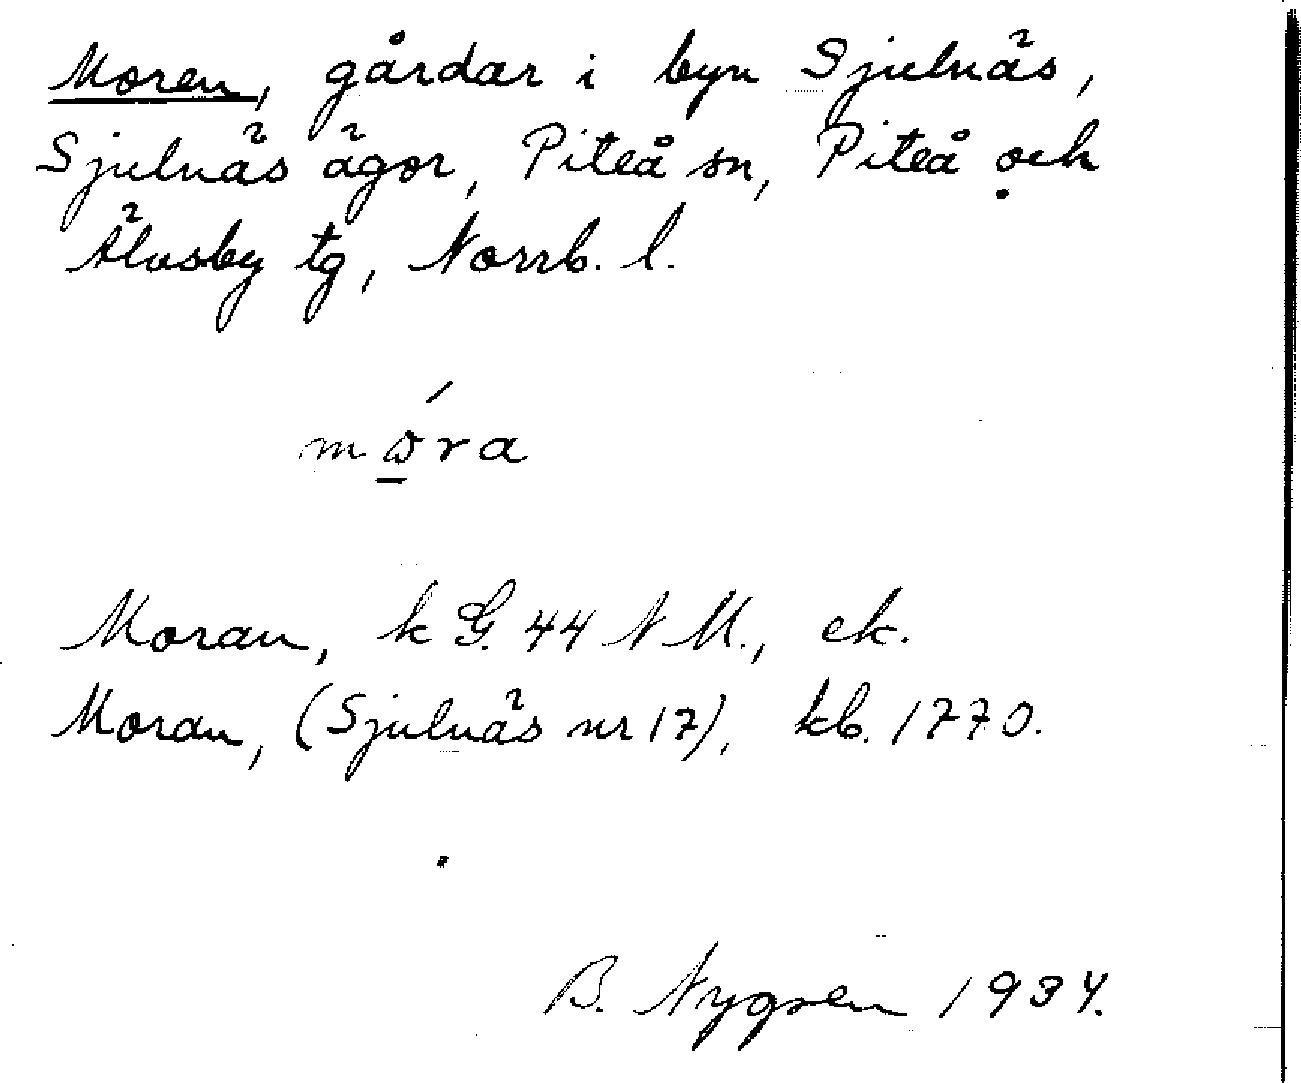 Moren, gårdar i byn Sjulnäs,
Sjulnäs ägor, Piteå sn, Piteå och
Älvsby tg, Norrb. l.
mώ̱ra
Moran, k G. 44 N M., ek.
Moran, (Sjulnäs nr 17), kb. 1770.
B. Nygren 1934.